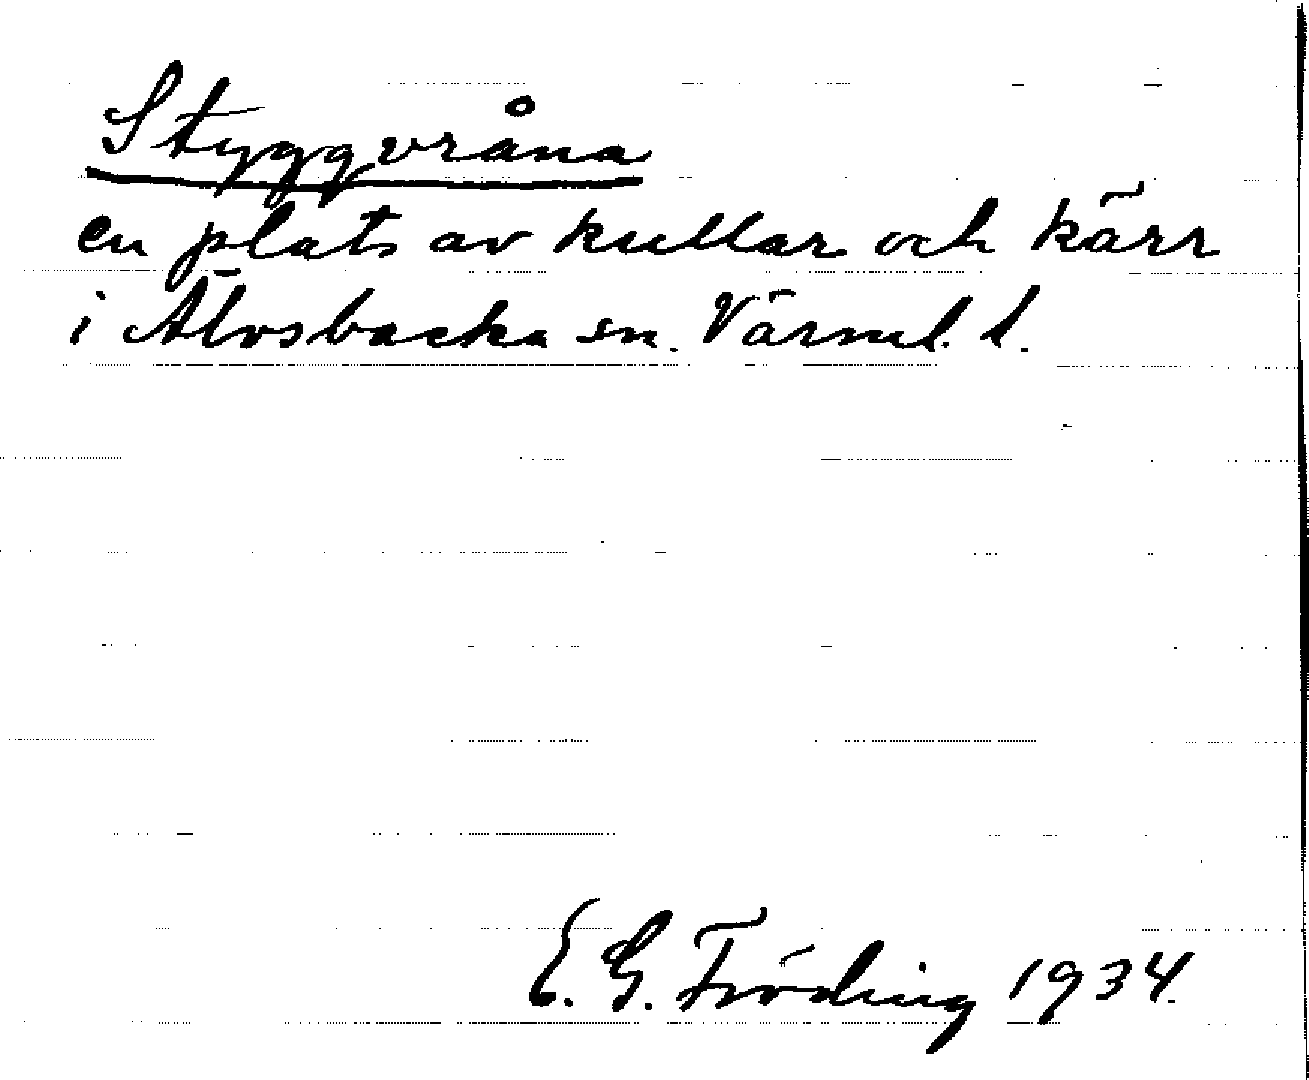 Styggvråna
en plats av kullar och kärr
i Älvsbacka sn. Värml. l.
E. G. Fröding 1934.